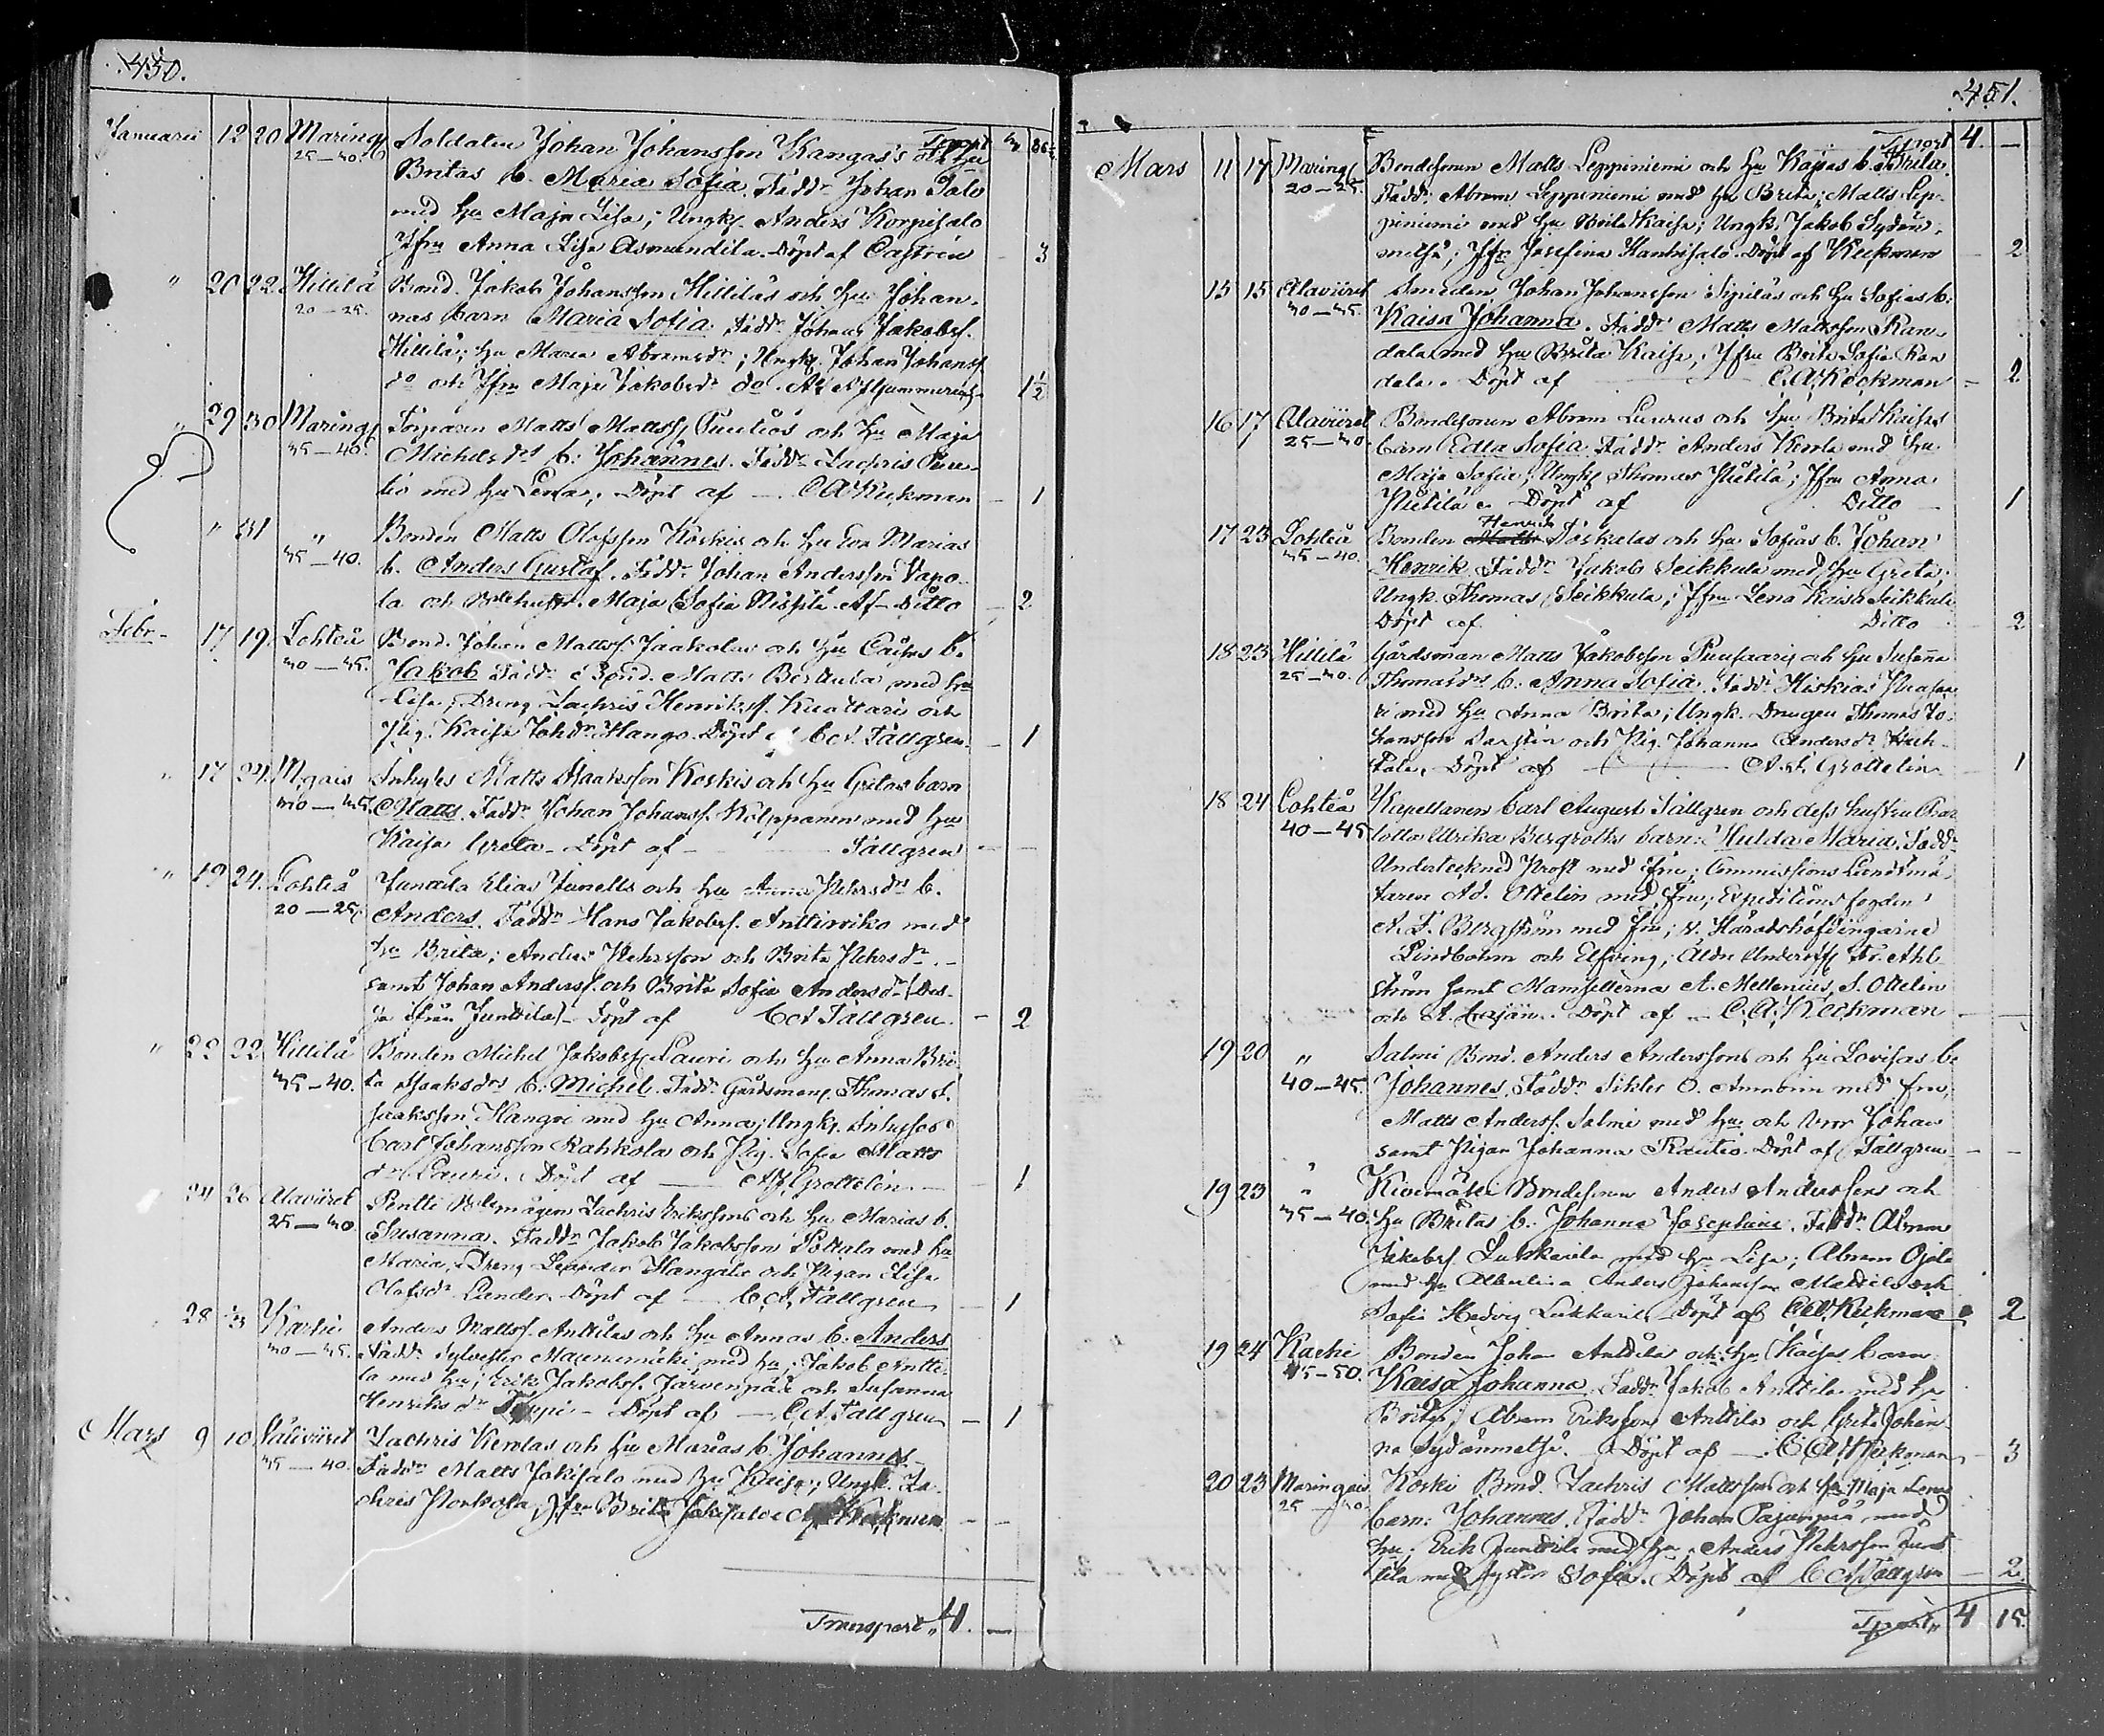 450.
Januarii 12 20 Marings Soldaten Johan Johansson Kangas's och hu Tsport 3 86½
25–30. Britas b. Maria Sofia. Faddr Johan Salo
med hu Maja Lisa; Ungk. Anders Korpisalo
Jfru Anna Lisa Asmundila. Döpt af Castrén – 3
" 20 22 Hillilä Bond. Jakob Johansson Hilliläs och hu Johan-
20–25. nas barn Maria Sofia. Faddr Johan Jakobss.
Hillilä; hu Maria Abramsdr; Ungk. Johan Johanss.
do och Jfru Maja Jakobsdr do. Af Hummerus 1½
" 29 30 Maring Torparen Matts Mattss. Puutios och hu Maja
35–40. Michelsdrs b. Johannes. Faddr Zachris Puu-
tio med hu Lena; Döpt af — C A Keckman – 1
" 31 " Bonden Matts Olofsson Koskis och hu Eva Marias
35–40. b. Anders Gustaf. Faddr Johan Andersson Vapo-
la och Bdehustr. Maja Sofia Niskila. Af Ditto – 2
Febr– 17 19 Lohteå Bond. Johan Mattss. Jaakolas och hu Caisas b.
30–35. Jakob Faddr Bond. Matts Berttula med hu
Lisa; Dreng Zachris Henrikss. Knuttari och
Pig. Kaisa Johdr Hango. Döpt af C A Tällgren – 1
" 17 24 M.gais Inhyses Matts Isaaksson Koskis och hu Gretas barn
30–35 Matts. Faddr Johan Johanss. Kälppanen med hu
Kaisa Greta – Döpt af — Tällgren – –
" 19 24. Lohteå Junttila Elias Junells och hu Anna Pehrsdrs b.
20–25 Anders. Faddr Hans Jakobss. Anttiroiko med
hu Brita; Anders Pehrsson och Brita Pehrsdr –
samt Johan Anderss. och Brita Sofia Andersdr (Des-
sa ifrån Junttila) – Döpt af C A Tällgren. – 2
" 22 22 Hillilä Bonden Michel Jakobss. Lauri och hu Anna Bri-
35–40. ta Isaaksdrs b. Michel. Faddr Gårdsman Thomas I-
saaksson Kangoi med hu Anna; Ungk. Inhyses
Carl Johansson Kahkola och Pig. Sofia Matts
dr Lauri. Döpt af — A J Grottelin — – 1
24 26 Alaviiret Pentti Bdemågen Zachris Erikssons och hu Marias b.
25–30 Susanna. Faddr Jakob Jakobsson Pöttala med hu
Maria, Dreng Leander Hangala och Pigan Lisa
Olofsdr Lunder. Döpt af — C A Tällgren – 1
28 3 Karhi Anders Mattss. Anttilas och hu Annas b. Anders
30–35. Faddr Sylvester Maunumäki med hu; Jakob Antti-
la med hu; Erik Jakobss. Järvenpää och Susanna
Henriksdr Toppi – Döpt af — C A Tällgren – 1
Mars 9 10 Pahviiret Zachris Kerolas och hu Marias b. Johannes.
35–40. Faddr Matts Jokisalo med hu Kaisa; Ungk. Za-
chris Porkola, Jfru Brita Jokisalo C A Keckman – –
Transport " 4. –
451.
Tsport 4. –
Mars 11 17 Maring Bondesonen Matts Leppiniemi och hu Kaisas b. Brita.
20–25. Faddr Abram Leppiniemi med hu Brita; Matts Lep-
piniemi med hu Brita Kaisa; Ungk. Jakob Sydän-
metsä; Jfru Josefina Hanhisalo. Döpt af Keckman – 2
15 15 Alaviiret Smeden Johan Johansson Sipiläs och hu Sofias b.
30–35. Kaisa Johanna. Faddr Matts Mattsson Ran-
dala med hu Brita Kaisa; Jfru Brita Sofia Ran
dala. Döpt af — C. A. Keckman – 2
16 17 Alaviiret Bondesonen Abram Laurus och hu Brita Kaisas
25–30. barn Edla Sofia. Faddr Anders Kerola med hu
Maja Sofia; Ungk. Thomas Pletilä; Jfru Anna
Pletilä. Döpt af Ditto – 1
17 23 Lohteå Bonden Matts Henrik Töskalas och hu Sofias b. Johan
35–40. Henrik Faddr Jakob Seikkula med hu Greta;
Ungk. Thomas Seikkula; Jfru Lena Kaisa Seikkula
Döpt af Ditto – 2
18 23 Hillilä Gårdsman Matts Jakobsson Puusaaris och hu Susanna
25–30. Thomasdrs b. Anna Sofia. Faddr Hiskias Puusaa-
ri med hu Anna Brita; Ungk. Drengen Thomas Jo-
hansson och Pig. Johanna Andersdr
Döpt af — A. J. Grottelin – 1
18 24 Lohteå Kapellanen Carl August Tällgren och dess hustru Char
40–45 lotta Ulrika Bergroths barn: Hulda Maria. Faddr
Undertecknad Prost med fru; Commissions Landtmä-
taren Ad. Ottelin med fru; Expeditions fogden
A. F. Bergström med fru; v. Häradshöfdingarne
Lindbohm och Elfving; Äldre Underoff. Fr. Ahl-
ström samt Mamsellerna A. Mellenius, S. Ottelin
och A. Cajan. Döpt af – C. A. Keckman – –
19 20 " Salmi Bond. Anders Anderssons och hu Lovisas b.
40–45. Johannes. Faddr O. med fru;
Matts Anderss. Salmi med hu och Johan
samt Pigan Johanna Rautio. Döpt af Tällgren – –
19 23 " Kivimäki Bondesonen Anders Anderssons och
35–40. hu Britas b. Johanna Josephina. Faddr Abram
Jakobss. med hu Lisa; Abram Ojala
med hu Albertina Anders Johansson Mattila och
Sofia Hedvig. Döpt af C A Keckman – 2
19 24 Karhi Bonden Johan Anttilas och hu Kaisas barn
45–50. Kaisa Johanna. Faddr Jakob Anttila med hu
Brita; Abram Eriksson Anttila och Greta Johan-
na Sydänmetsä. Döpt af — C A Keckman – 3
20 23 Maringais Koski Bond. Zachris Mattssons och hu Maja Lenas
25–30 barn: Johannes. Faddr Johan Pajunpää med
hu. Erik Junttila med hu. Anders Pehrsson Junt
tila med syster Sofia. Döpt af C A Tällgren – 2.
Tsport " 4 15.